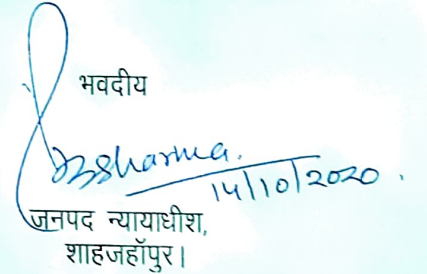 भवदीय
14/10/2020.
जनपद न्यायाधीश,
शाहजहाँपुर।